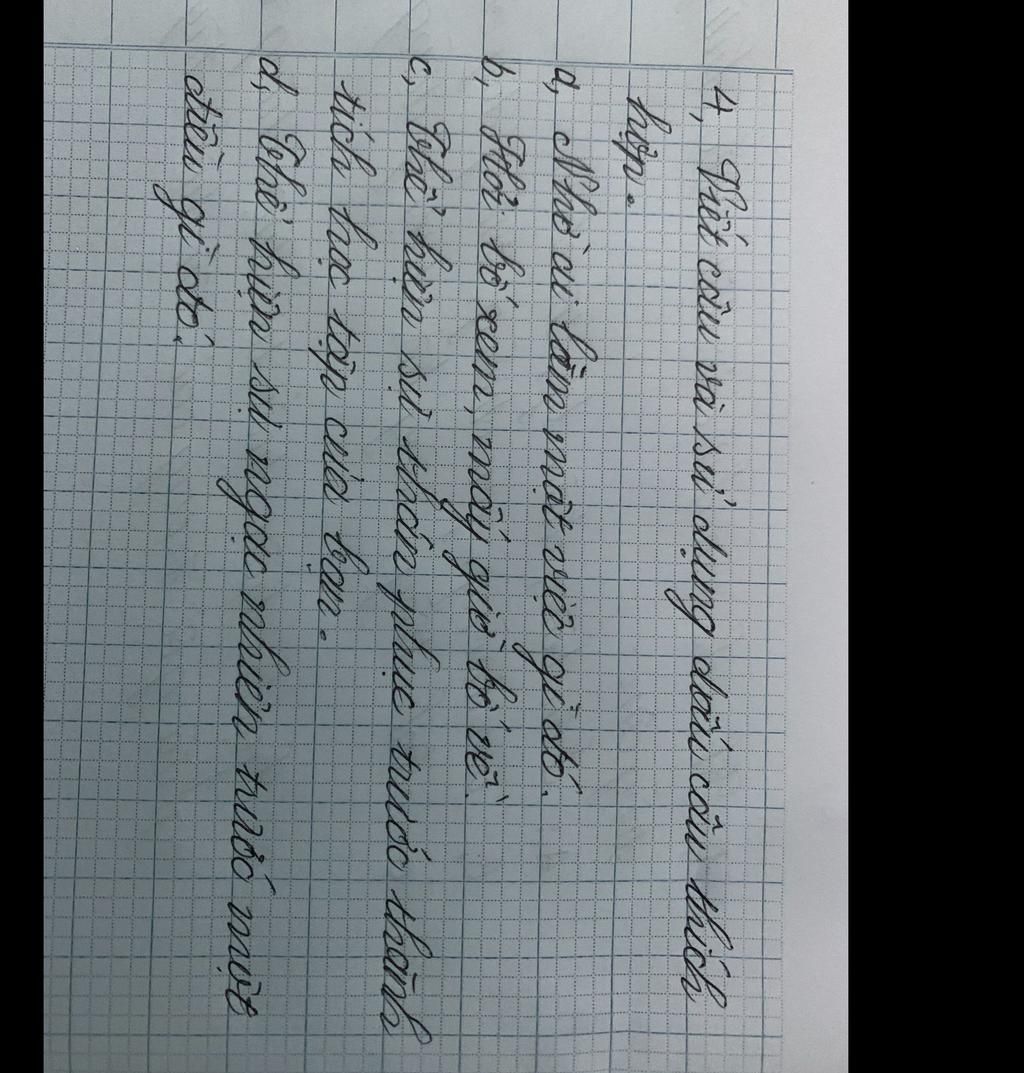 4, Viết câu và sử dụng dấu câu thích
hợp.
a, Nhờ ai làm một việc gì đó.
b, Hỏi bố xem, mấy giờ bố về.
c, Thể hiện sự thán phục trước thành
tích học tập của bạn.
d, Thể hiện sự ngạc nhiên trướ một
điều gì đó.